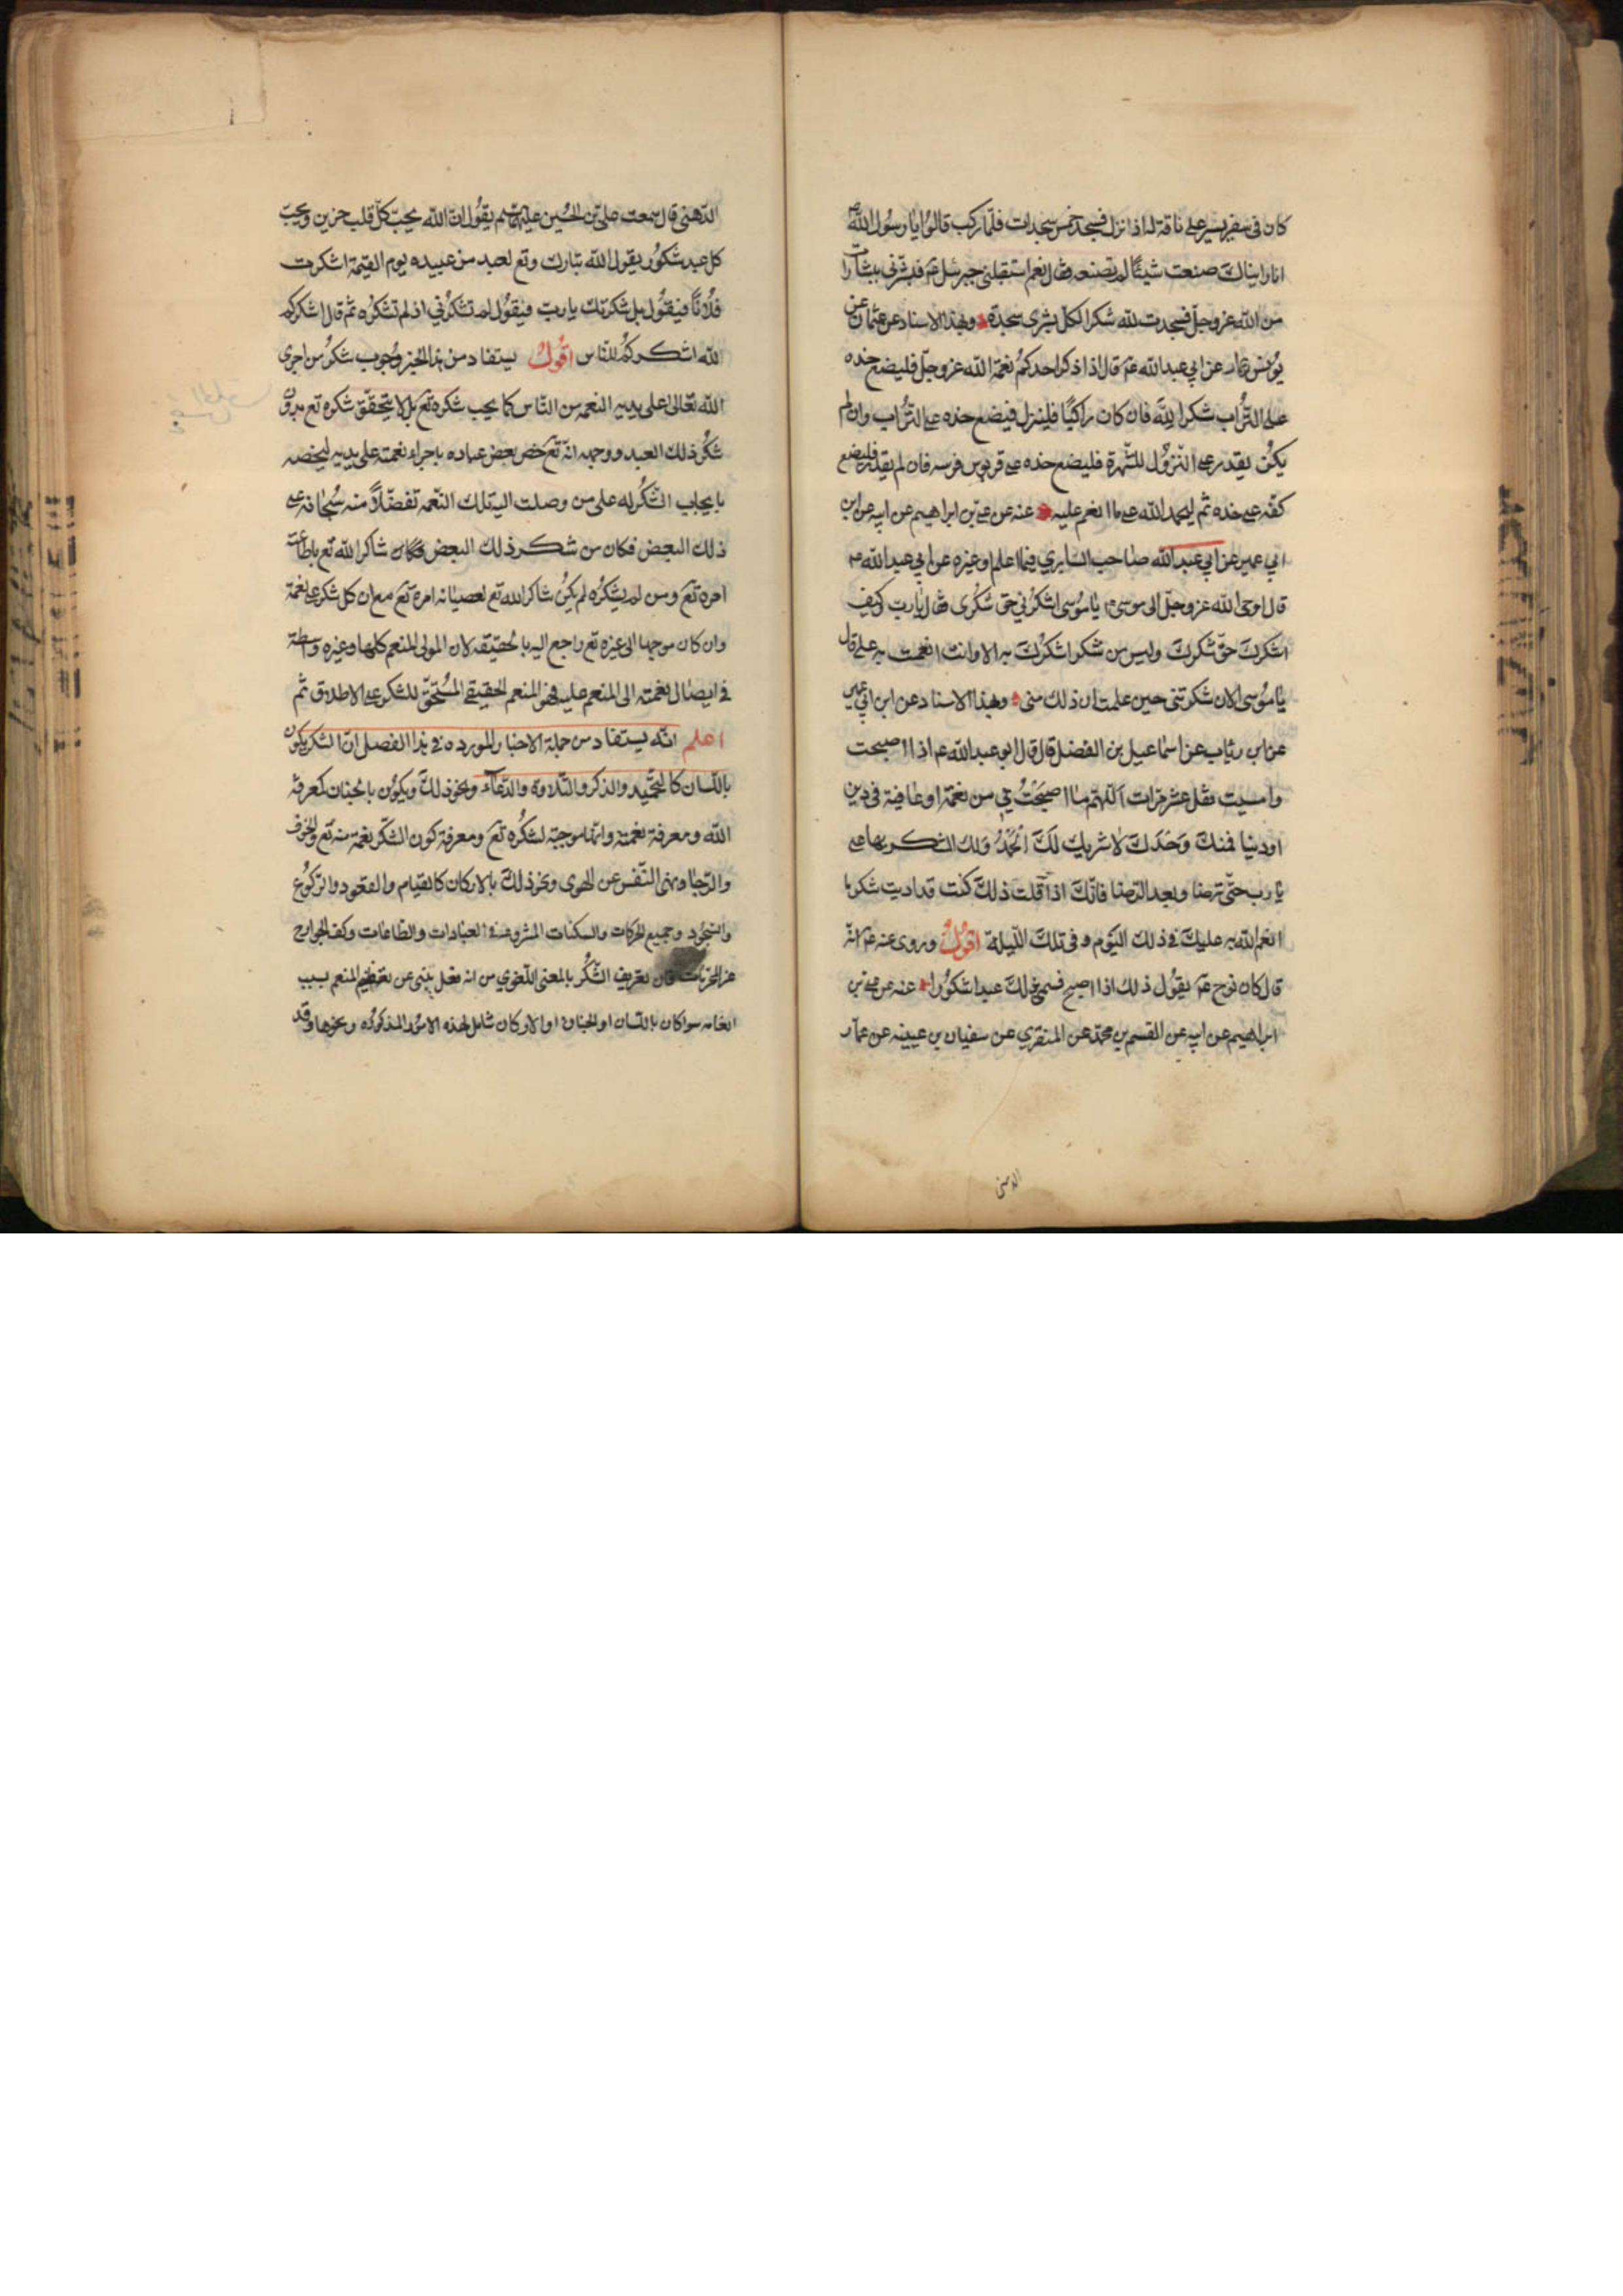 كان في سفر يسير على ناقة له اذا نزل فسجد خمس سجدات فلمّا ركب قالوا يا رسول الله ص
انا رايناك صنعت شيئًا لم تصنعه فقال نعم استقبلني جبرئيل ع فبشّرني ببشارات
من الله عز وجلّ فسجدت لله شكرا لكلّ بشرى سجدة وبهذا الاسناد عن عثمان بن
يونس عمار عن ابي عبد الله ع قال اذا ذكر احدكم نعمة الله عز وجلّ فليضع خده
على التّراب شكرا للّه فان كان راكبًا فلينزل فيضع خده على التّراب وان لم
يكن يقدر على النّزول للشهرة فليضع خده على قربوس فرسه فان لم يقدر فليضع
كفّه على خده ثم ليحمد الله على ما انعم عليه عنه عن علي بن ابراهيم عن ابيه عن ابن
ابي عمير عن ابي عبد الله صاحب السابري فيما اعلم او غيره عن ابي عبد الله ع
قال اوحى الله عز وجلّ الى موسى ع يا موسى اشكرني حق شكري فقال يا ربّ كيف
اشكرك حقّ شكرك وليس من شكر اشكرك به الا وانت انعمت به علي قال
يا موسى الان شكرتني حين علمت ان ذلك مني وبهذا الاسناد عن ابن ابي عمير
عن ابن رئاب عن اسماعيل بن الفضل قال قال ابو عبد الله ع اذا اصبحت
وامسيت فقل عشر مرّات اللّهمّ ما اصبحَتْ بي من نعمة او عافية في دين
او دنيا فمنك وَحْدَكَ لا شريك لَكَ الحَمْدُ ولك الشكر بها علي
يا رب حتّى ترضا وبعد الرّضا فانّك اذا قلت ذلك كنت قد اديت شكر ما
انعم الله به عليك في ذلك اليوم وفي تلك اللّيلة اقول وروى عنه ع انّه
قال كان نوح ع يقول ذلك اذا اصبح فسمي بذلك عبدا شكورا عنه عن علي بن
ابراهيم عن ابيه عن القسم بن محمّد عن المنقري عن سفيان بن عيينه عن عمّار
الدهني
الدّهني قال سمعت علي بن الحسين عليهما السلم يقول انّ الله يحبّ كلّ قلب حزين ويحبّ
كل عبد شكور يقول الله تبارك وتع لعبد من عبيده يوم القيمة اشكرت
فلانًا فيقول بل شكرتك يا ربّ فيقول لم تشكرني اذ لم تشكره ثم قال اشكركم
للّه اشكركم للنّاس اقول يستفاد من هذا الخبر وجوب شكر من اجرى
الله تعالى على يديه النعمه من النّاس كما يجب شكره تع بل لا يتحقّق شكره تع بدون
شكر ذلك العبد ووجهه انّه تع خص بعض عباده باجراء نعمته على يديه ليخصه
بايجاب الشّكر له على من وصلت اليه تلك النّعمه تفضّلاً منه سبحانه على
ذلك البعض فكان من شكر ذلك البعض فكان شاكرا لله تع باطاعت
امره تع ومن لم يشكره لم يكن شاكرا لله تع لعصيانه امره تع مع ان كل شكر على نعمة
وان كان موجها الى غيره تع راجع اليه بالحقيقه لان المولى المنعم كلها وغيره واسطة
في ايصال نعمته الى المنعم عليه فهو المنعم الحقيقي المستحقّ للشكر على الاطلاق ثم
اعلم انّه يستفاد من جملة الاخبار المورده في هذا الفصل انّ الشكر يكون
باللّسان كالتّحميد والذكر والتّلاوة والدّعاء ونحو ذلك ويكون بالجنان كمعرفة
الله ومعرفة نعمته وانّها موجبة لشكره تع ومعرفة كون الشّكر نعمة منه تع والخوف
والرّجا ونهى النّفس عن الهوى ونحو ذلك بالاركان كالقيام والقعود والرّكوع
والسّجود وجميع الحركات والسكنات المشروعة في العبادات والطّاعات وكف الجوارح
عن المحرّمات فان تعريف الشّكر بالمعنى اللّغوي من انه فعل ينبى عن تعظيم المنعم بسبب
انعامه سوا كان باللّسان او الجنان او الاركان شامل لهذه الامور المذكوره ونحوها وقد